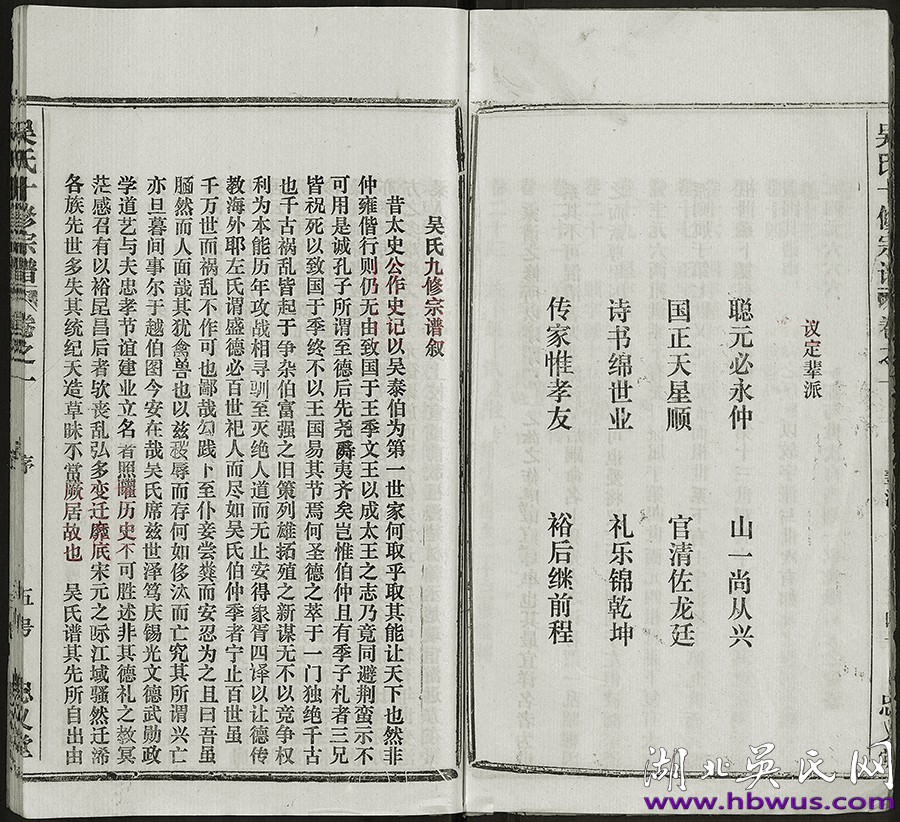 议定辈派
聪元必永仲 山一尚从兴
国正天星顺 官清佐龙廷
诗书绵世业 礼乐锦乾坤
传家惟孝友 裕后继前程
吴氏九修宗谱叙
昔太史公作史记以吴泰伯为第一世家何取乎取其能让天下也然非
仲雍偕行则仍无由致国于王季文王以成太王之志乃竟同避荆蛮示不
可用是诚孔子所谓至德后先尧爵夷齐矣岂惟伯仲且有季子札者三兄
皆祝死以致国于季终不以王国易其节焉何圣德之萃于一门独绝千古
也千古祸乱皆起于争杂伯富强之旧策列雄拓殖之新谋无不以竞争权
利为本能历年攻战相寻驯至灭绝人道而无止安得家胥四译以让德传
教海外耶左氏谓盛德必百世祀人而尽如吴氏伯仲季者宁止百世虽
千万世而祸乱不作可也鄙哉勾践卜至仆妾尝粪而安忍为之且曰吾虽
腼然而人面哉其犹禽兽也以兹辱而存何如侈汰而亡究其所谓兴亡
亦旦暮间事尔于越伯图今安在哉吴氏席兹世泽笃庆锡光文德武勋政
学道艺与夫忠孝节谊建业立名者照曜历史不可胜述非其德礼之教冥
茫感召有以裕昆昌后者欤丧乱弘多变迁靡底宋元之际江域骚然迁浠
各族先世多失其统纪天造草昧不当厥居故也 吴氏谱其先所自出由
吴氏十修宗谱 卷之一 序 五号 忠义堂
湖北吴氏网
www.hbwus.com